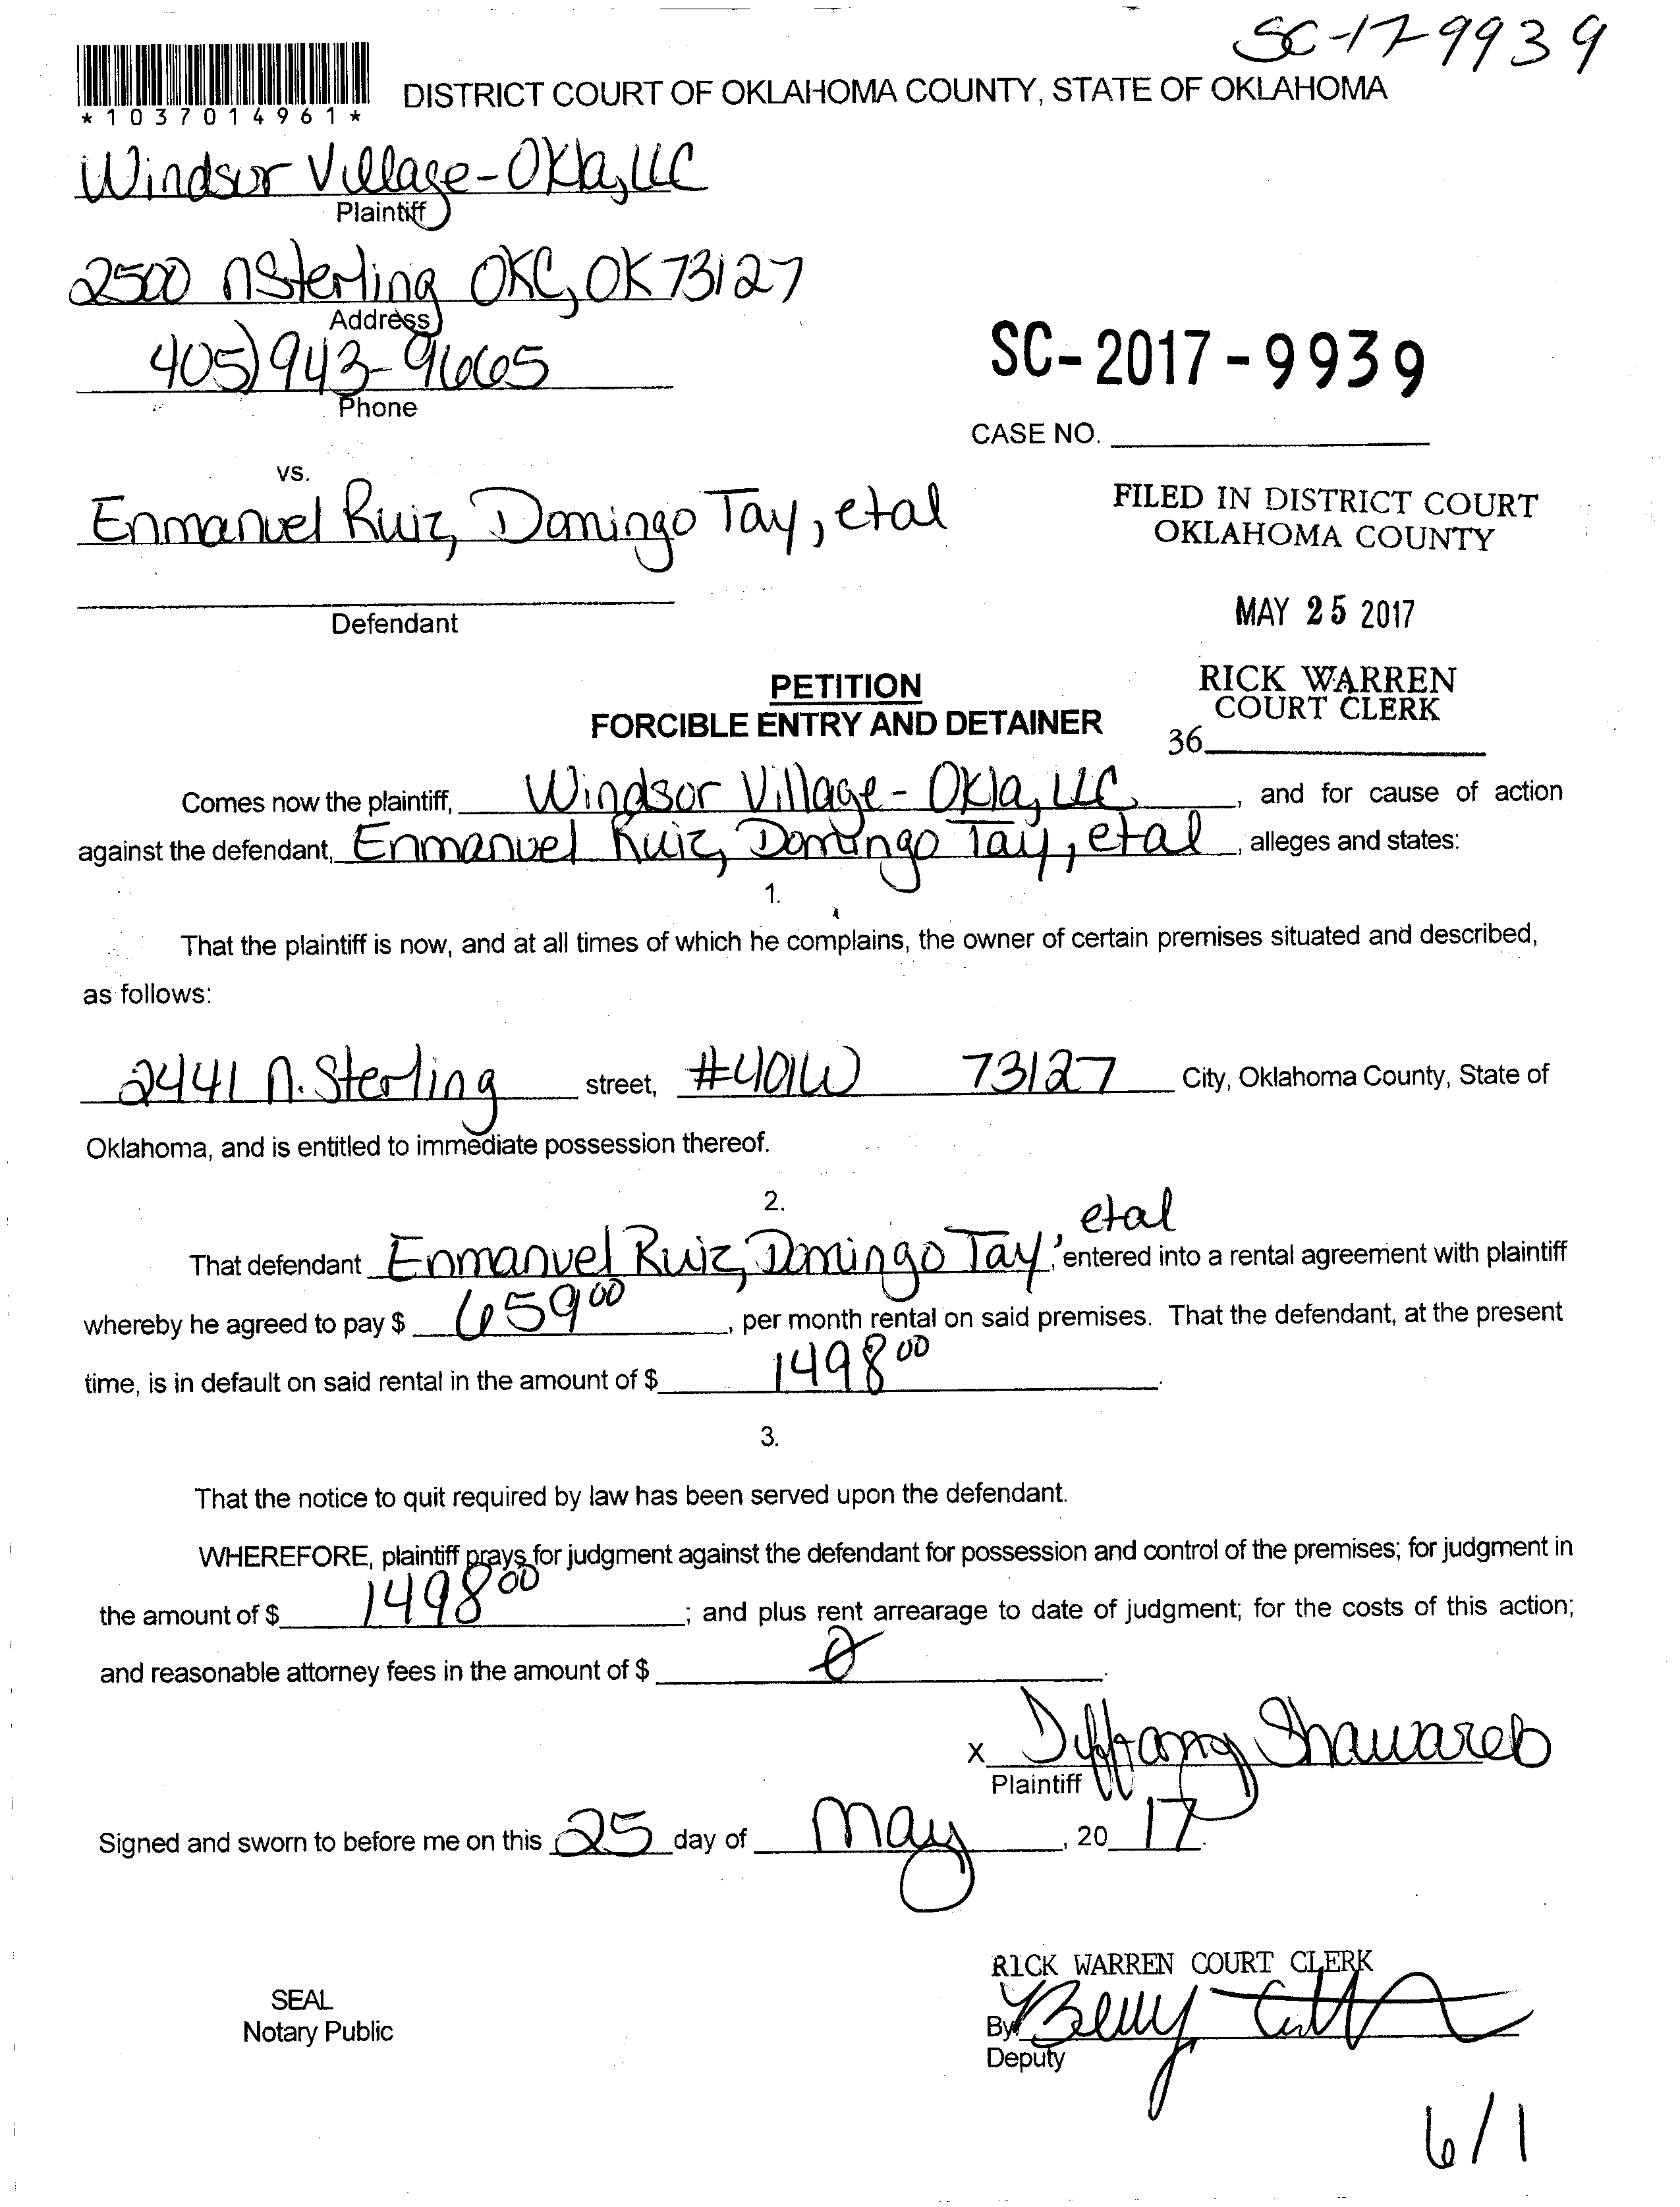 SC-17-9939
*1037014961*
DISTRICT COURT OF OKLAHOMA COUNTY, STATE OF OKLAHOMA
Windsor Village-Okla, LLC
Plaintiff
2500 N Sterling OKC, OK 73127
Address
405) 943-9665
Phone
SC-2017-9939
CASE NO.
vs.
Enmanuel Ruiz, Domingo Tay, etal
Defendant
FILED IN DISTRICT COURT
OKLAHOMA COUNTY
MAY 25 2017
RICK WARREN
COURT CLERK
36
PETITION
FORCIBLE ENTRY AND DETAINER
Comes now the plaintiff, Windsor Village-Okla, LLC, and for cause of action
against the defendant, Enmanuel Ruiz, Domingo Tay, etal, alleges and states:
1.
That the plaintiff is now, and at all times of which he complains, the owner of certain premises situated and described,
as follows:
2441 N. Sterling street, #401W 73127 City, Oklahoma County, State of
Oklahoma, and is entitled to immediate possession thereof.
2.
That defendant Enmanuel Ruiz, Domingo Tay, etal, entered into a rental agreement with plaintiff
whereby he agreed to pay $ 659 00, per month rental on said premises. That the defendant, at the present
time, is in default on said rental in the amount of $ 1498 00.
3.
That the notice to quit required by law has been served upon the defendant.
WHEREFORE, plaintiff prays for judgment against the defendant for possession and control of the premises; for judgment in
the amount of $ 1498 00; and plus rent arrearage to date of judgment; for the costs of this action;
and reasonable attorney fees in the amount of $ 0.
x Tiffany Shawareb
Plaintiff
Signed and sworn to before me on this 25 day of May, 2017.
SEAL
Notary Public
RICK WARREN COURT CLERK
By
Deputy
6/1